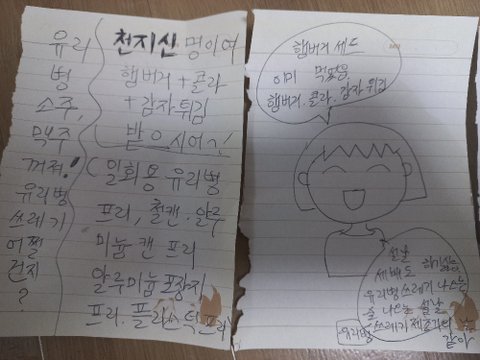 유리
병
소주,
맥주
꺼져!
유리병
쓰레기
어쩔
건지
?
천지신 명이여
햄버거 + 콜라
+ 감자튀김
받으시어소!
(일회용 유리병
프리, 철캔, 알루
미늄 캔 프리
알루미늄 포장지
프리, 플라스틱 프리
햄버거 세트
이미 먹었음
햄버거, 콜라, 감자튀김
설날
세배도
유리병쓰레기 나오는
술 나오는 설날
쓰레기 제조
같아
유리병